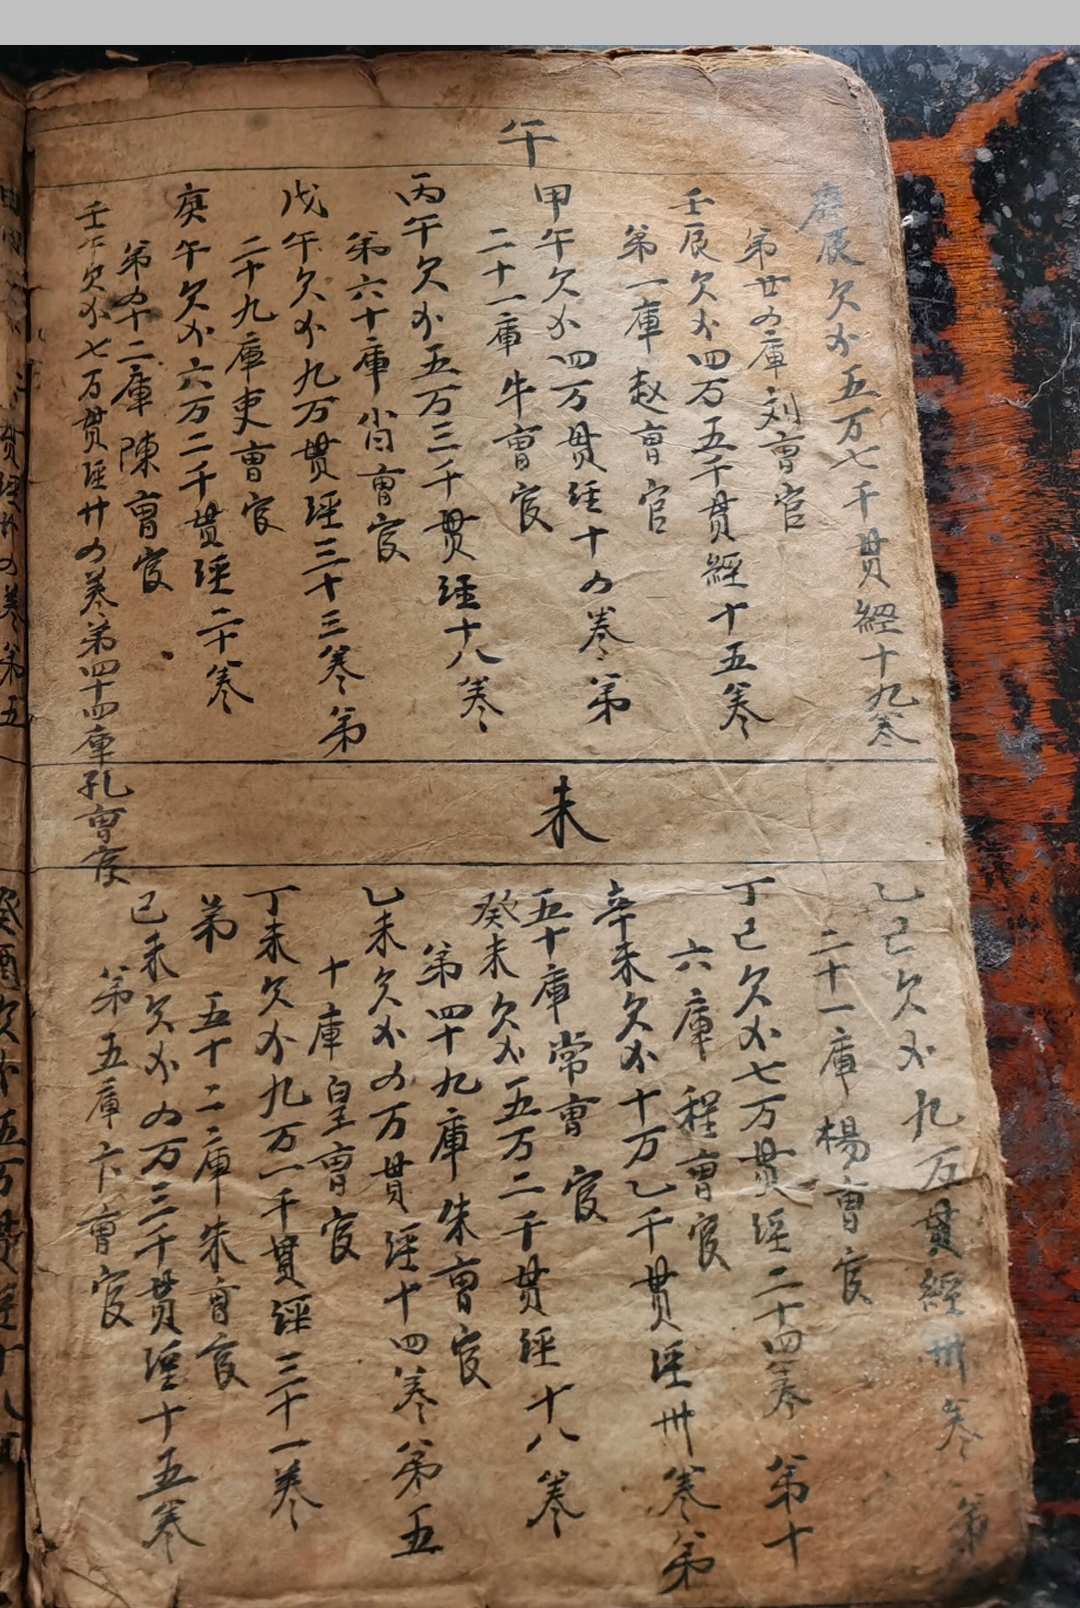 庚辰欠不五万七千贯經十九卷
第廿四庫刘曹官
壬辰欠不四万五千贯經十五卷
第一庫赵曹官
午
甲午欠不四万贯经十四卷第
二十一庫牛曹官
丙午欠不五万三千贯经十八卷
第六十庫肖曹官
戊午欠不九万贯经三十三卷第
二十九庫吏曹官
庚午欠不六万二千贯经二十卷
第四十二庫陳曹官
壬午欠不七万贯经廿四卷第四十四庫孔曹官
乙巳欠不九万贯經卅卷第
二十一庫楊曹官
丁巳欠不七万贯经二十四卷第十
六庫程曹官
未
辛未欠不十万乙千贯经卅卷第
五十庫常曹官
癸未欠不五万二千贯经十八卷
第四十九庫朱曹官
乙未欠不四万贯经十四卷第五
十庫皇曹官
丁未欠不九万一千贯经三十一卷
第五十二庫朱曹官
己未欠不四万三千贯经十五卷
第五庫卞曹官